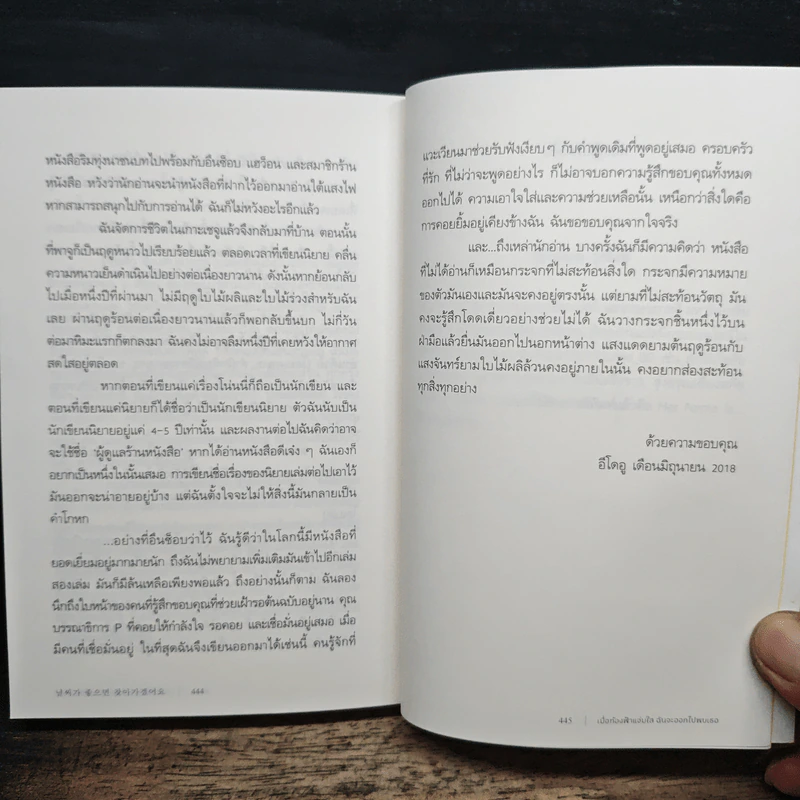 หนังสือริมทุ่งนาชนบทไปพร้อมกับอึนซ็อบ แฮว็อน และสมาชิกร้าน
หนังสือ หวังว่านักอ่านจะนำหนังสือที่ฝากไว้ออกมาอ่านใต้แสงไฟ
หากสามารถสนุกไปกับการอ่านได้ ฉันก็ไม่หวังอะไรอีกแล้ว
ฉันจัดการชีวิตในเกาะเชจูแล้วจึงกลับมาที่บ้าน ตอนนั้น
ที่พาจูก็เป็นฤดูหนาวไปเรียบร้อยแล้ว ตลอดเวลาที่เขียนนิยาย คลื่น
ความหนาวเย็นดำเนินไปอย่างต่อเนื่องยาวนาน ดังนั้นหากย้อนกลับ
ไปเมื่อหนึ่งปีที่ผ่านมา ไม่มีฤดูใบไม้ผลิและใบไม้ร่วงสำหรับฉัน
เลย ผ่านฤดูร้อนต่อเนื่องยาวนานแล้วก็พอกลับขึ้นบก ไม่กี่วัน
ต่อมาหิมะแรกก็ตกลงมา ฉันคงไม่อาจลืมหนึ่งปีที่เคยหวังให้อากาศ
สดใสอยู่ตลอด
หากตอนที่เขียนแค่เรื่องโน่นนี่ก็ถือเป็นนักเขียน และ
ตอนที่เขียนแค่นิยายก็ได้ชื่อว่าเป็นนักเขียนนิยาย ตัวฉันนับเป็น
นักเขียนนิยายอยู่แค่ 4-5 ปีเท่านั้น และผลงานต่อไปฉันคิดว่าอาจ
จะใช้ชื่อ ‘ผู้ดูแลร้านหนังสือ’ หากได้อ่านหนังสือดีเจ๋ง ๆ ฉันเองก็
อยากเป็นหนึ่งในนั้นเสมอ การเขียนชื่อเรื่องของนิยายเล่มต่อไปเอาไว้
มันออกจะน่าอายอยู่บ้าง แต่ฉันตั้งใจจะไม่ให้สิ่งนี้มันกลายเป็น
คำโกหก
...อย่างที่อึนซ็อบว่าไว้ ฉันรู้ดีว่าในโลกนี้มีหนังสือที่
ยอดเยี่ยมอยู่มากมายนัก ถึงฉันไม่พยายามเพิ่มเติมมันเข้าไปอีกเล่ม
สองเล่ม มันก็มีล้นเหลือเพียงพอแล้ว ถึงอย่างนั้นก็ตาม ฉันลอง
นึกถึงใบหน้าของคนที่รู้สึกขอบคุณที่ช่วยเฝ้ารอต้นฉบับอยู่นาน คุณ
บรรณาธิการ P ที่คอยให้กำลังใจ รอคอย และเชื่อมั่นอยู่เสมอ เมื่อ
มีคนที่เชื่อมั่นอยู่ ในที่สุดฉันจึงเขียนออกมาได้เช่นนี้ คนรู้จักที่
날씨가 좋으면 찾아가겠어요 | 444
แวะเวียนมาช่วยรับฟังเงียบ ๆ กับคำพูดเดิมที่พูดอยู่เสมอ ครอบครัว
ที่รัก ที่ไม่ว่าจะพูดอย่างไร ก็ไม่อาจบอกความรู้สึกขอบคุณทั้งหมด
ออกไปได้ ความเอาใจใส่และความช่วยเหลือนั้น เหนือกว่าสิ่งใดคือ
การคอยยิ้มอยู่เคียงข้างฉัน ฉันขอขอบคุณจากใจจริง
และ...ถึงเหล่านักอ่าน บางครั้งฉันก็มีความคิดว่า หนังสือ
ที่ไม่ได้อ่านก็เหมือนกระจกที่ไม่สะท้อนสิ่งใด กระจกมีความหมาย
ของตัวมันเองและมันจะคงอยู่ตรงนั้น แต่ยามที่ไม่สะท้อนวัตถุ มัน
คงจะรู้สึกโดดเดี่ยวอย่างช่วยไม่ได้ ฉันวางกระจกชิ้นหนึ่งไว้บน
ฝ่ามือแล้วยื่นมันออกไปนอกหน้าต่าง แสงแดดยามต้นฤดูร้อนกับ
แสงจันทร์ยามใบไม้ผลิล้วนคงอยู่ภายในนั้น คงอยากส่องสะท้อน
ทุกสิ่งทุกอย่าง
ด้วยความขอบคุณ
อีโดอู เดือนมิถุนายน 2018
445 | เมื่อท้องฟ้าแจ่มใส ฉันจะออกไปพบเธอ